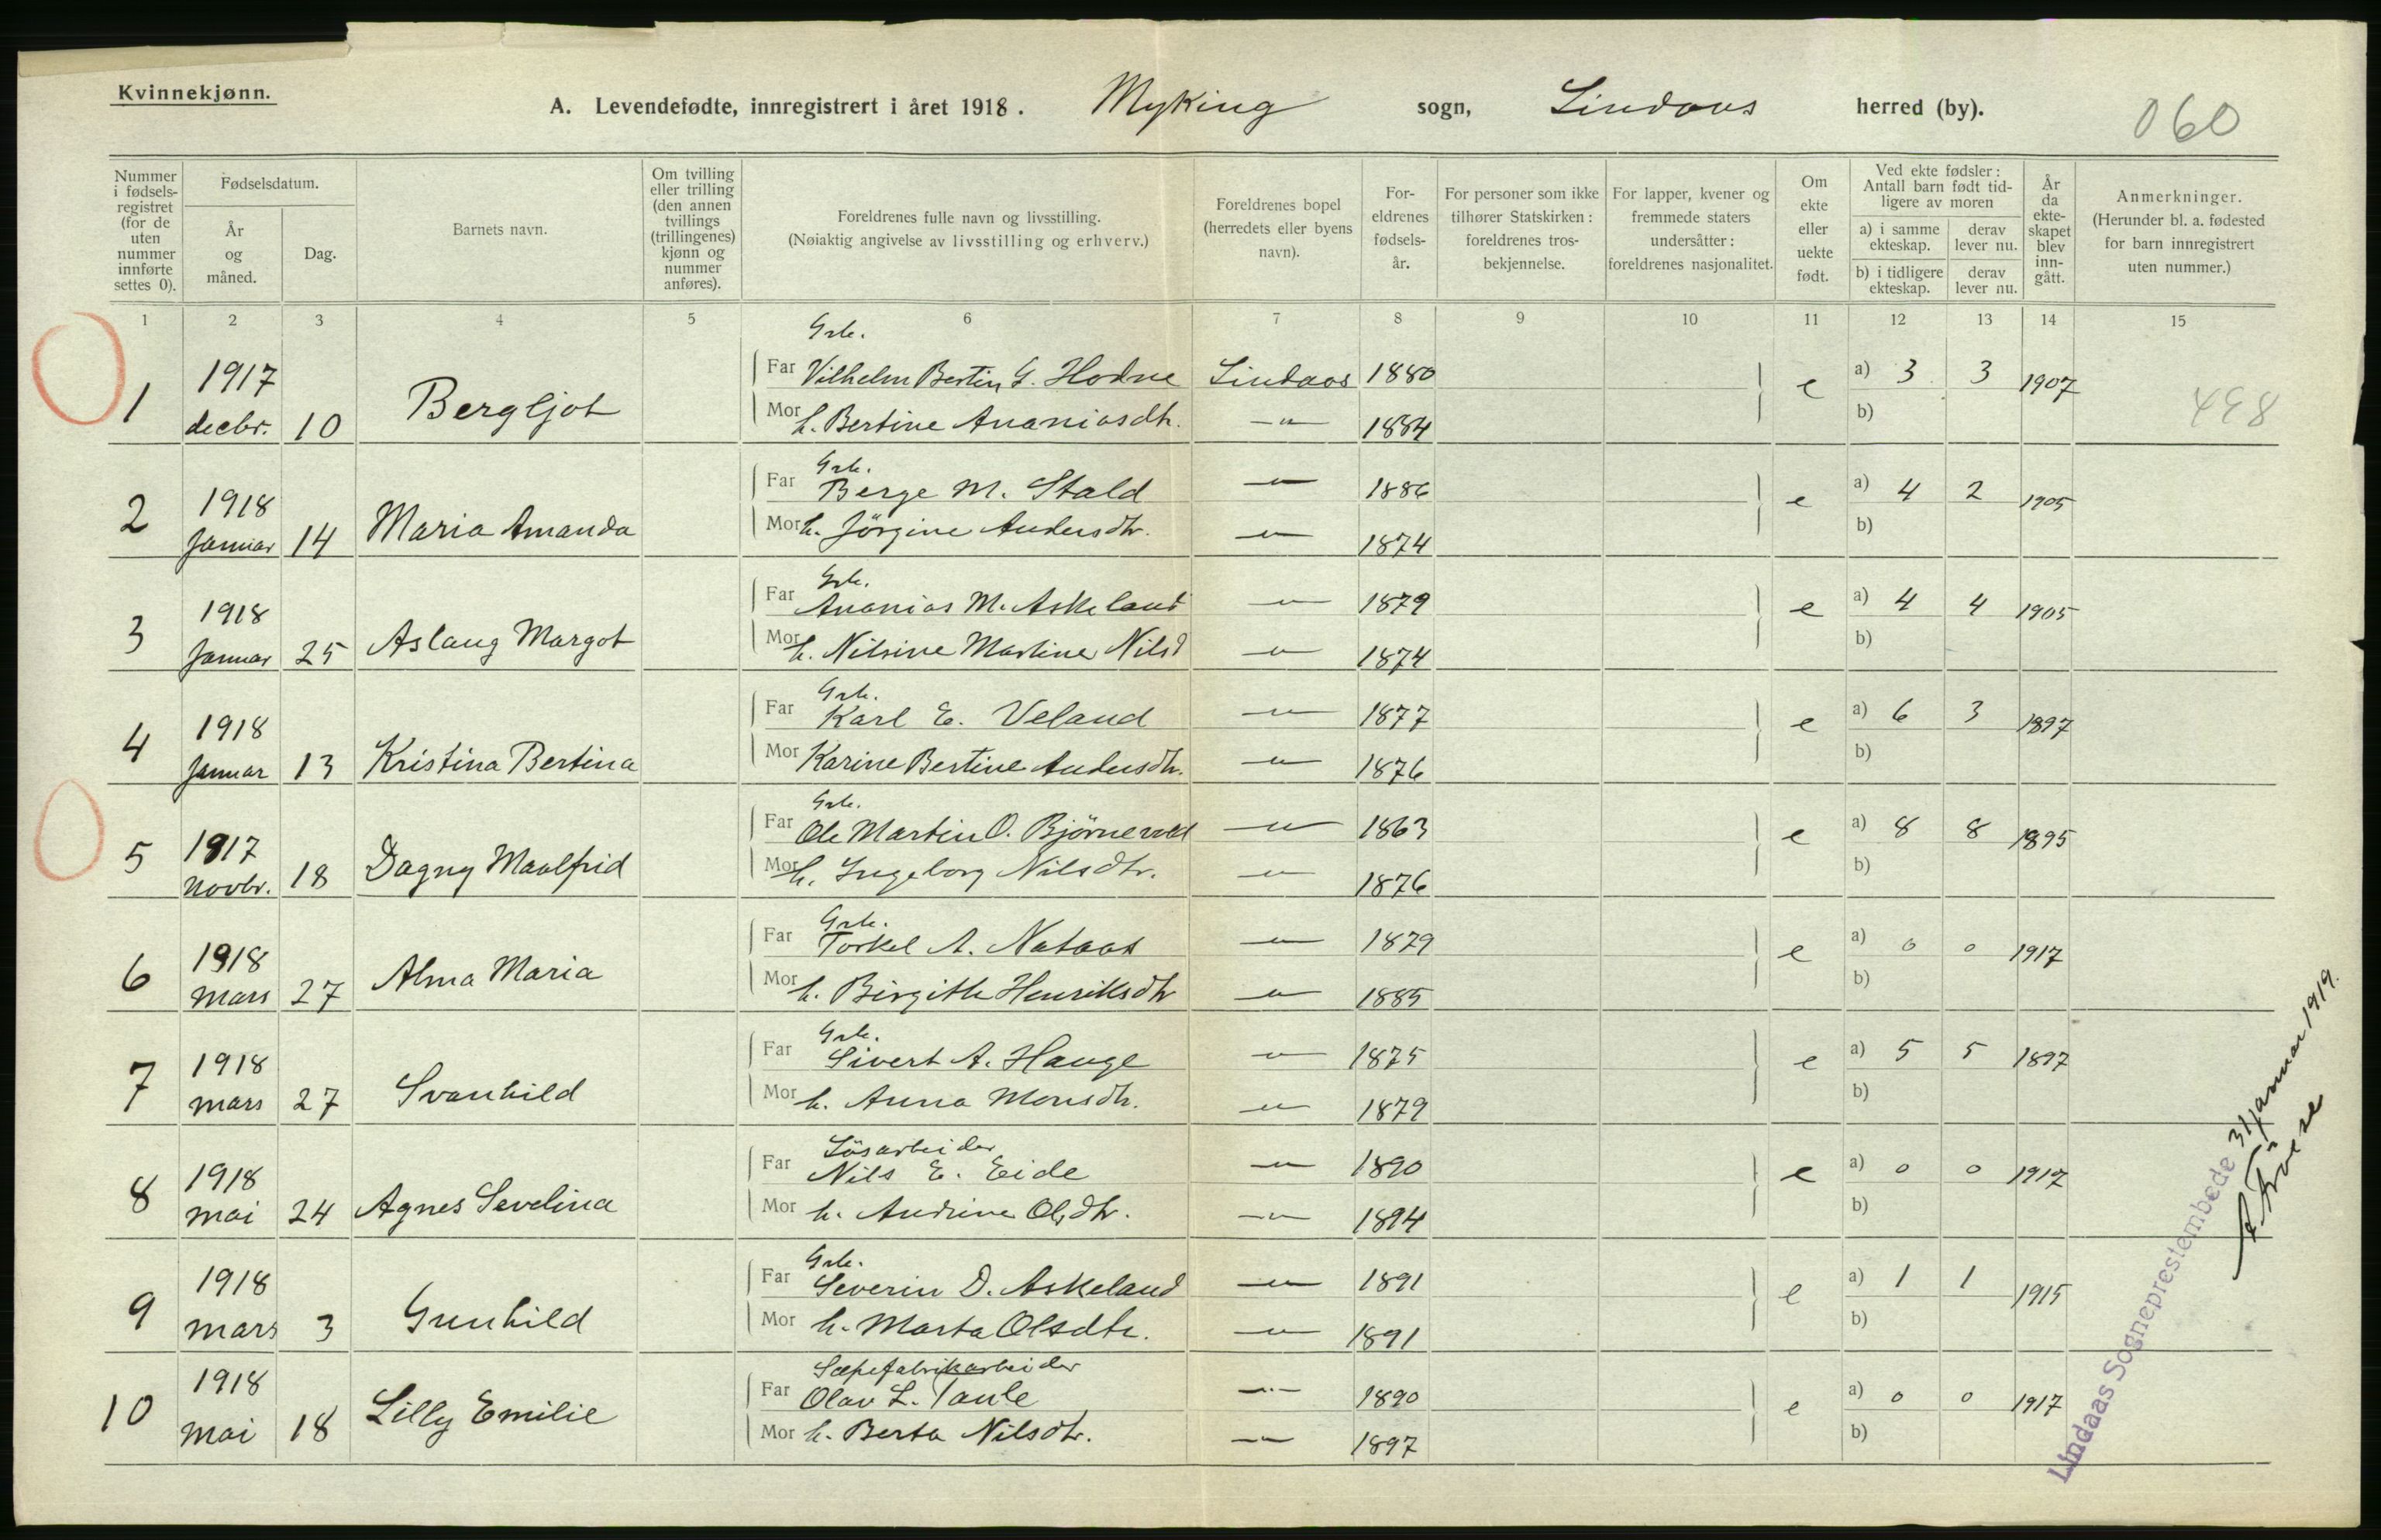 Kvinnekjønn.
A. Levendefødte, innregistrert i året 1918. Myking sogn, Lindaas herred (by).
060
Nummer i fødsels-registret (for de uten nummer innførte settes 0).
Fødselsdatum.
År og måned.
Dag.
Barnets navn.
Om tvilling eller trilling (den annen tvillings (trillingenes) kjønn og nummer anføres).
Foreldrenes fulle navn og livsstilling.
(Nøiaktig angivelse av livsstilling og erhverv.)
Foreldrenes bopel (herredets eller byens navn).
For-eldrenes fødsels-år.
For personer som ikke tilhører Statskirken: foreldrenes tros-bekjennelse.
For lapper, kvener og fremmede staters undersåtter: foreldrenes nasjonalitet.
Om ekte eller uekte født.
Ved ekte fødsler: Antall barn født tid-ligere av moren
a) i samme ekteskap.
derav lever nu.
b) i tidligere ekteskap.
derav lever nu.
År da ekte-skapet blev inn-gått.
Anmerkninger.
(Herunder bl. a. fødested for barn innregistrert uten nummer.)
1 2 3 4 5 6 7 8 9 10 11 12 13 14 15
Grb.
1 1917 decbr. 10 Bergljot Far Vilhelm Bertin G. Hodne Lindaas 1880 e a) 3 3 1907 498
Mor h. Bertine Ananiasdtr. —"— 1884 b)
Grb.
2 1918 Januar 14 Maria Amanda Far Berge M. Stald —"— 1886 e a) 4 2 1905
Mor h. Jörgine Andersdtr. —"— 1874 b)
Grb.
3 1918 Januar 25 Aslaug Margot Far Ananias M. Askeland —"— 1879 e a) 4 4 1905
Mor h. Nilsine Martine Nilsd —"— 1874 b)
Grb.
4 1918 Januar 13 Kristina Bertina Far Karl E. Veland —"— 1877 e a) 6 3 1897
Mor Karine Bertine Andersdtr. —"— 1876 b)
Grb.
5 1917 Novbr. 18 Dagny Maalfrid Far Ole Martin O. Björnevold —"— 1863 e a) 8 8 1895
Mor h. Ingeborg Nilsdtr. —"— 1876 b)
Grb.
6 1918 mars 27 Alma Maria Far Torkel A. Nataas —"— 1879 e a) 0 0 1917
Mor h. Birgithe Henriksdtr —"— 1885 b)
Grb.
7 1918 mars 27 Svanhild Far Sivert A. Hauge —"— 1875 e a) 5 5 1897
Mor h. Anna Monsdtr. —"— 1879 b)
Lösarbeider
8 1918 mai 24 Agnes Sevelina Far Nils E. Eide —"— 1890 e a) 0 0 1917
Mor h. Andrine Olsdtr. —"— 1894 b)
Grb.
9 1918 mars 3 Gunhild Far Severin D. Askeland —"— 1891 e a) 1 1 1915
Mor h. Marta Olsdtr. —"— 1891 b)
Sæpefabrikarbeider
10 1918 mai 18 Lilly Emilie Far Olav L. Taule —"— 1890 e a) 0 0 1917
Mor h. Berta Nilsdtr. —"— 1897 b)
Lindaas Sogneprestembede 31 januar 1919.